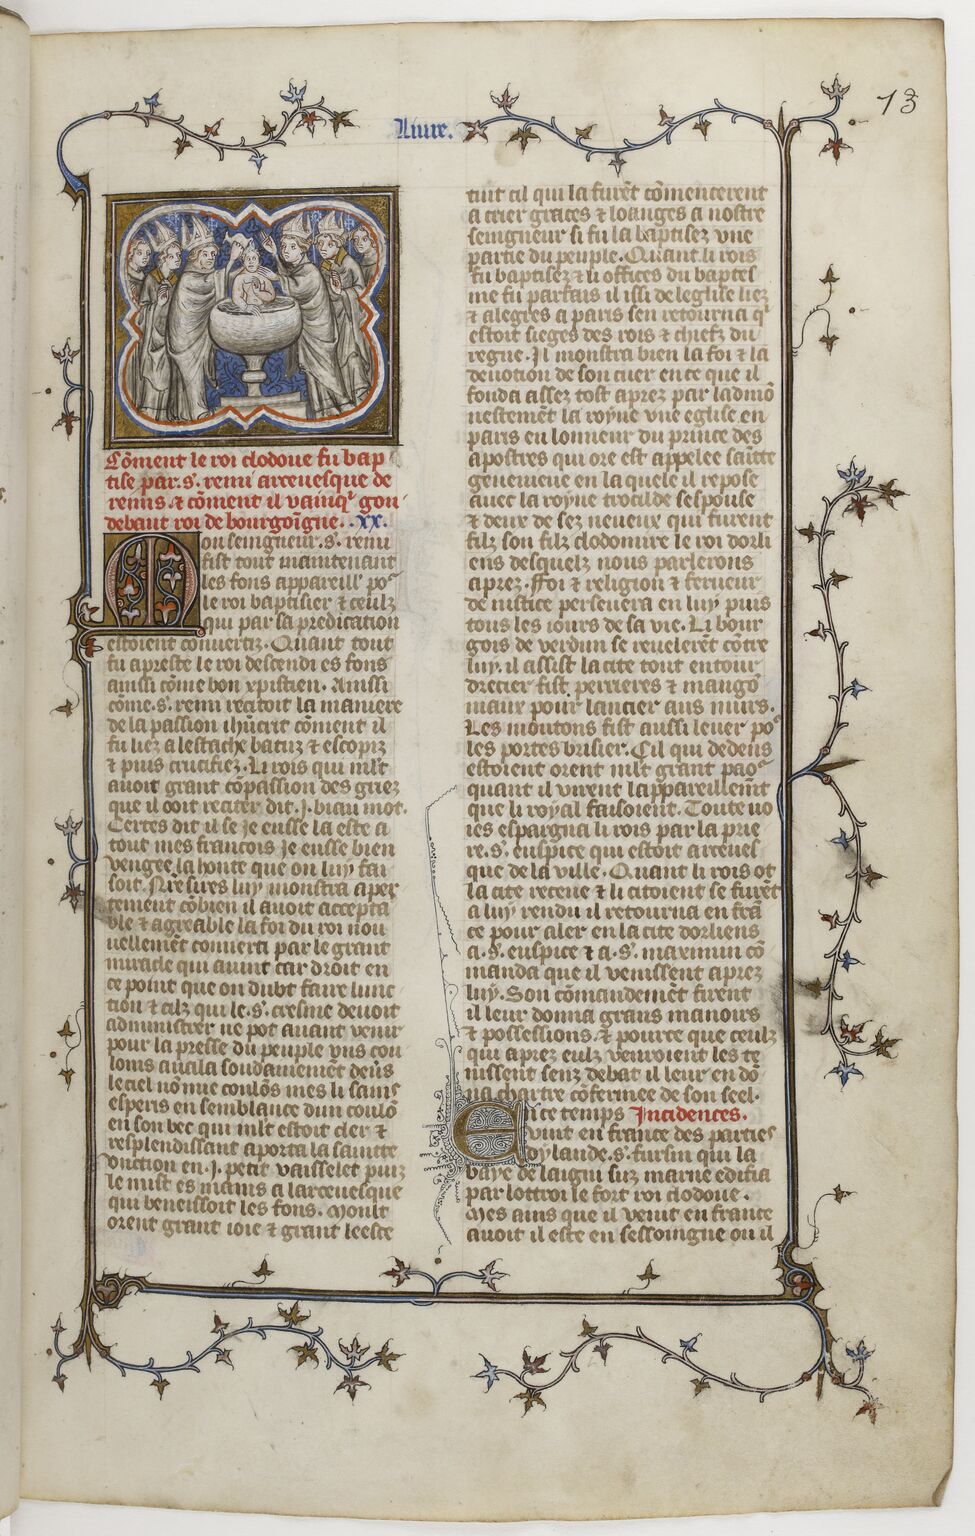 13
Liure.
Cõment le roi clodoue fu bap
tise par .s᷑. remi arceuesque de
reins. ⁊ cõment il vainq᷑ gon
debaut roi de bourgoĩgne. .XX.
Mon seingneur .s᷑. remi
fist tout maintenant
les fons appareill᷑ po᷑
le roi baptisier ⁊ ceulz
qui par sa predication
estoient conuertiz. Quant tout
fu apreste le roi descendi es fons
auissi cõme bon xpistien. Auissi
cõme .s᷑. remi recitoit la maniere
de la passion ihucrit cõment il
fu liez a lestache batuz ⁊ escopiz
⁊ puis crucifiez. Li rois qui mlt
auoit grant cõpassion des griez
que il ooit reciter dit .I. biau mot.
Certes dit il se ie eusse la este a
tout mes francois ie eusse bien
vengee la honte que on luy fai
soit. Nre sires luy monstra aper
tement cõbien il auoit accepta
ble ⁊ agreable la foi du roi nou
uellemẽt conuerti par le grant
miracle qui auint car droit en
ce point que on dubt faire lunc
tion ⁊ cilz qui le .s᷑. cresme deuoit
administrer ne pot auant venir
pour la presse du peuple vns cou
lons auola soudainemẽt deũs
le ciel nõ mie coulõs mes li sains
esperis en semblance dun coulõ
en son bec qui mlt estoit cler ⁊
resplendissant aporta la saintte
vnction en .I. petit vaisselet puiz
le mist es mains a larceuesque
qui beneissoit les fons. Moult
orent grant ioie ⁊ grant leesce
tuit cil qui la furẽt cõmencerent
a crier graces ⁊ loanges a nostre
seingneur si fu la baptisez vne
partie du peuple. Quant li rois
fu baptisez ⁊ li offices du baptes
me fu parfais il issi de leglise liez
⁊ alegres a paris sen retourna q᷑
estoit sieges des rois ⁊ chiefz du
regne. Il monstra bien la foi ⁊ la
deuotion de son cuer en ce que il
fonda assez tost aprez par ladmõ
nestemẽt la royne vne eglise en
paris en lonneur du prince des
apostres qui ore est appelee saintte
geneuieue en la quele il repose
auec la royne trocilde sespouse
⁊ deux de sez neueux qui furent
filz son filz clodomire le roi dorli
ens desquelz nous parlerons
aprez. Foi ⁊ religion ⁊ ferueur
de iustice perseuera en luy puis
tous les iours de sa vie. Li bour
gois de verdun se reuelerẽt cõtre
luy. il assist la cite tout entour
drecier fist perrieres ⁊ mangõ
niaux pour lancier aus murs.
Les moutons fist aussi leuer po᷑
les portes brisier. Cil qui dedens
estoient orent mlt grant pao᷑
quant il virent lappareillemẽt
que li royal faisoient. Toute uo
ies espargna li rois par la prie
re .s᷑. euspice qui estoit arceues
que de la ville. Quant li rois ot
la cite receue ⁊ li citoient se furẽt
a luy rendu il retourna en frã
ce pour aler en la cite dorliens
a .s᷑. euspice ⁊ a .s᷑. maximin cõ
manda que il venissent aprez
luy. Son cõmandemẽt firent
il leur donna grans manoirs
⁊ possessions. ⁊ pource que ceulz
qui aprez eulz venroient les te
nissent senz debat il leur en dõ
na chartre cõfermee de son seel.
En ce temps Incidences.
vint en france des parties
doylande .s᷑. fursin qui la
baye de laigni suz marne edifia
par lottroi le fort roi clodoue.
Mes ains que il venit en france
auoit il este en sessoingne ou il